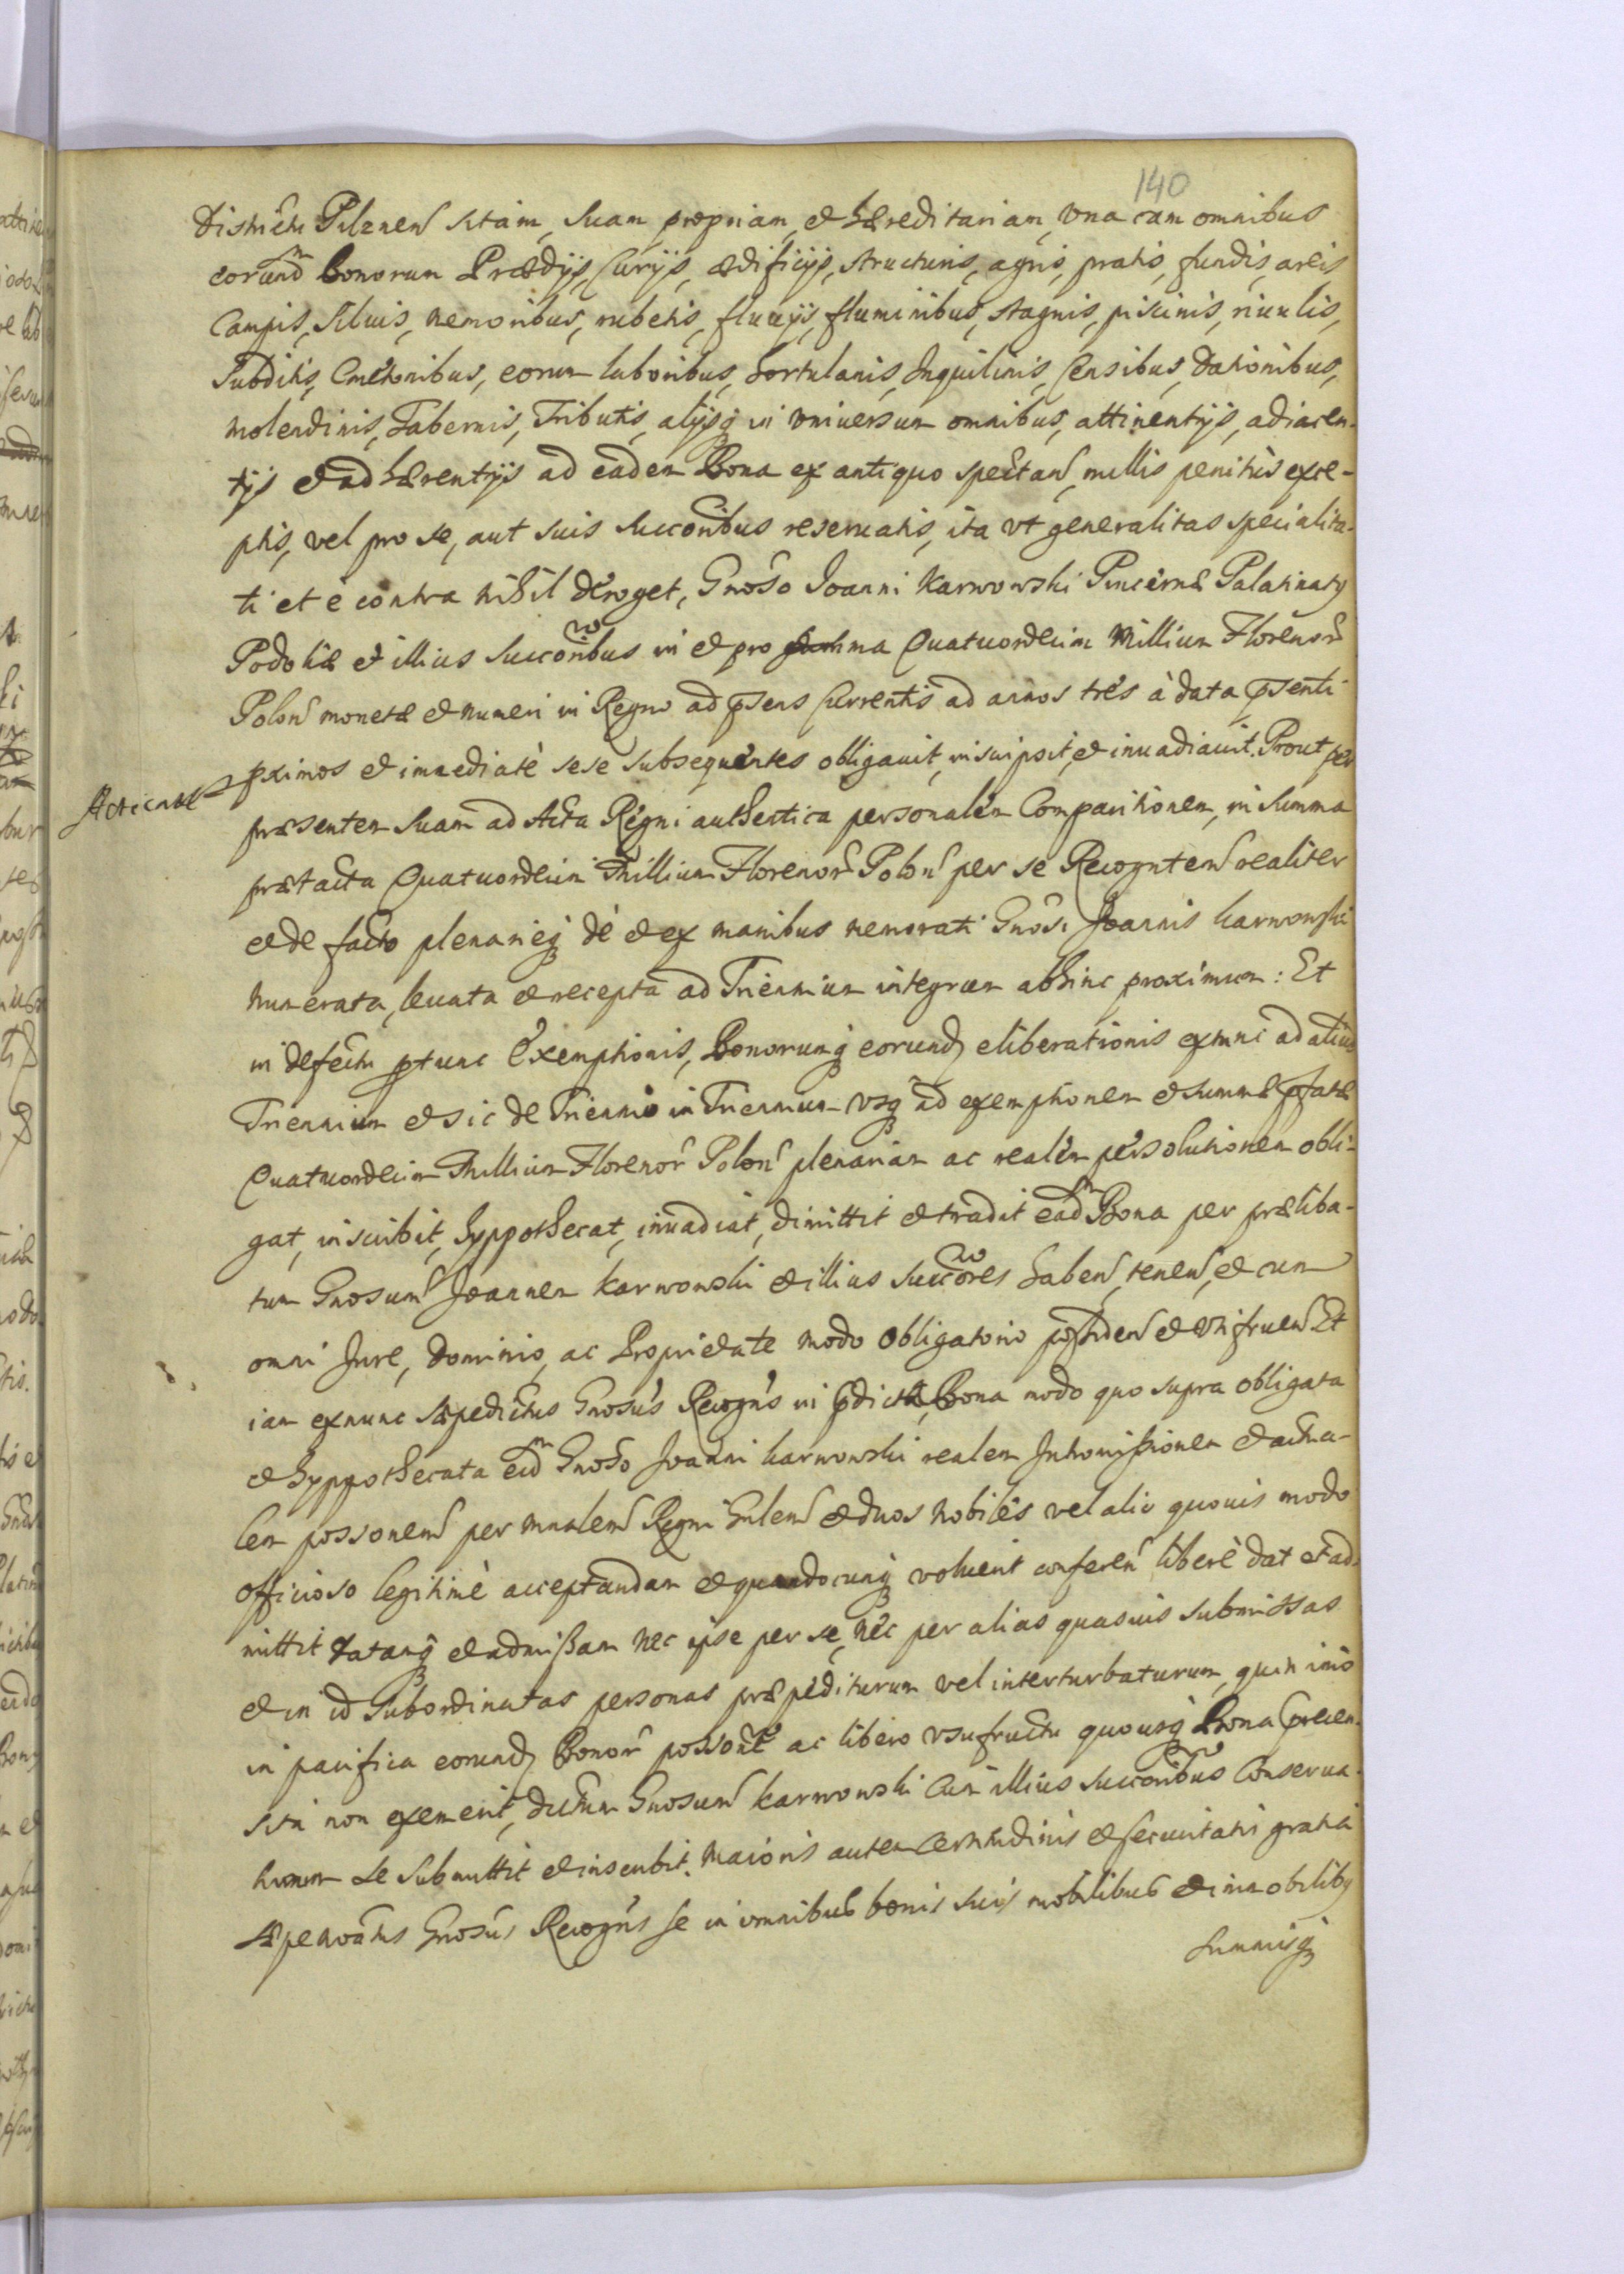 140
Districtu Pilznen sitam, suam propriam, et hæreditariam, vna cum omnibus
eorund bonorum Prædijs, Curijs, ædificijs, structuris, agris, pratis, fundis, areis
Campis, Siluis, Nemoribus, rubetis, fluuijs, fluminibus, stagnis, piscinis, riuulis,
Subditis, Cmethonibus, eorum laboribus, hortulanis, Inquilinis, Censibus, Dationibus,
Molendinis, Tabernis, Tributis, alijsq in vniuersum omnibus, attinentijs, adiacen-
tijs et adhærentijs ad eadem Bona ex antiquo spectan, nullis penitus exce-
ptis, vel pro se, aut suis succoribus reseruatis, ita vt generalitas specialita-
ti et è contra nihil deroget, Gnoso Joanni Karwowski Pincernæ Palatinatus
Podoliæ et illius Succoribus in et pro summa Quatuordecim Millium Florenor
Polon monetæ et numeri in Regno ad psens Currentis ad annos tres à data psenti
pximos et immediatè sese subsequentes obligauit, inscripsit, et inuadiauit. Prout per
Acticatæ
præsentem suam ad Acta Regni authentica personalem Comparitionem, in Summa
prætacta Quatuordecim Millium Florenor Polon per se Recognten realiter
et de facto plenarieq de et ex manibus memorati Gnosi Joannis Karwowski
numerata, leuata et recepta ad Triennium integrum abhinc proximum: Et
in defectu ptunc exemptionis, Bonorumq eorund eliberationis extunc ad aliud
Triennium et sic de Triennio in Triennium vsq ad exemptionem et summæ pfatæ
Quatuordecim Millium Florenor Polon plenariam ac realem persolutionem obli-
gat, inscribit, hyppothecat, inuadiat, dimittit et tradit ead Bona per præliba-
tum Gnosum Joannem Karwowski et illius succores haben, tenen, et cum
omni Jure, dominio, ac Proprietate modo obligatorio possiden et vtifruen Et
iam exnunc sæpedictus Gnosus Recogns in pdicta Bona modo quo supra obligata
et hyppothecata eid Gnoso Joanni Karwowski realem Intromissionem et actua-
lem possonem per Mnalem Regni Gnlem et duos Nobiles vel alio quouis modo
officioso legitimè acceptandam et quandocunq voluerit conferen liberè dat et ad-
mittit datamq et admissam nec ipse per se, nec per alias quasuis submissas
et in id subordinatas personas præpediturum vel interturbaturum, quin imò
in pacifica eorund Bonor possone ac libero vsufructu quousq Bona precen-
sita non exemerit, dictum Gnosum Karwowski cum illius succoribus Conserua-
turum se submittit et inscribit. Maioris autem Certitudinis et securitatis gratia
sæpenoatus Gnosus Recogns se in omnibus bonis suis mobilibus et immobilibus
Summisq